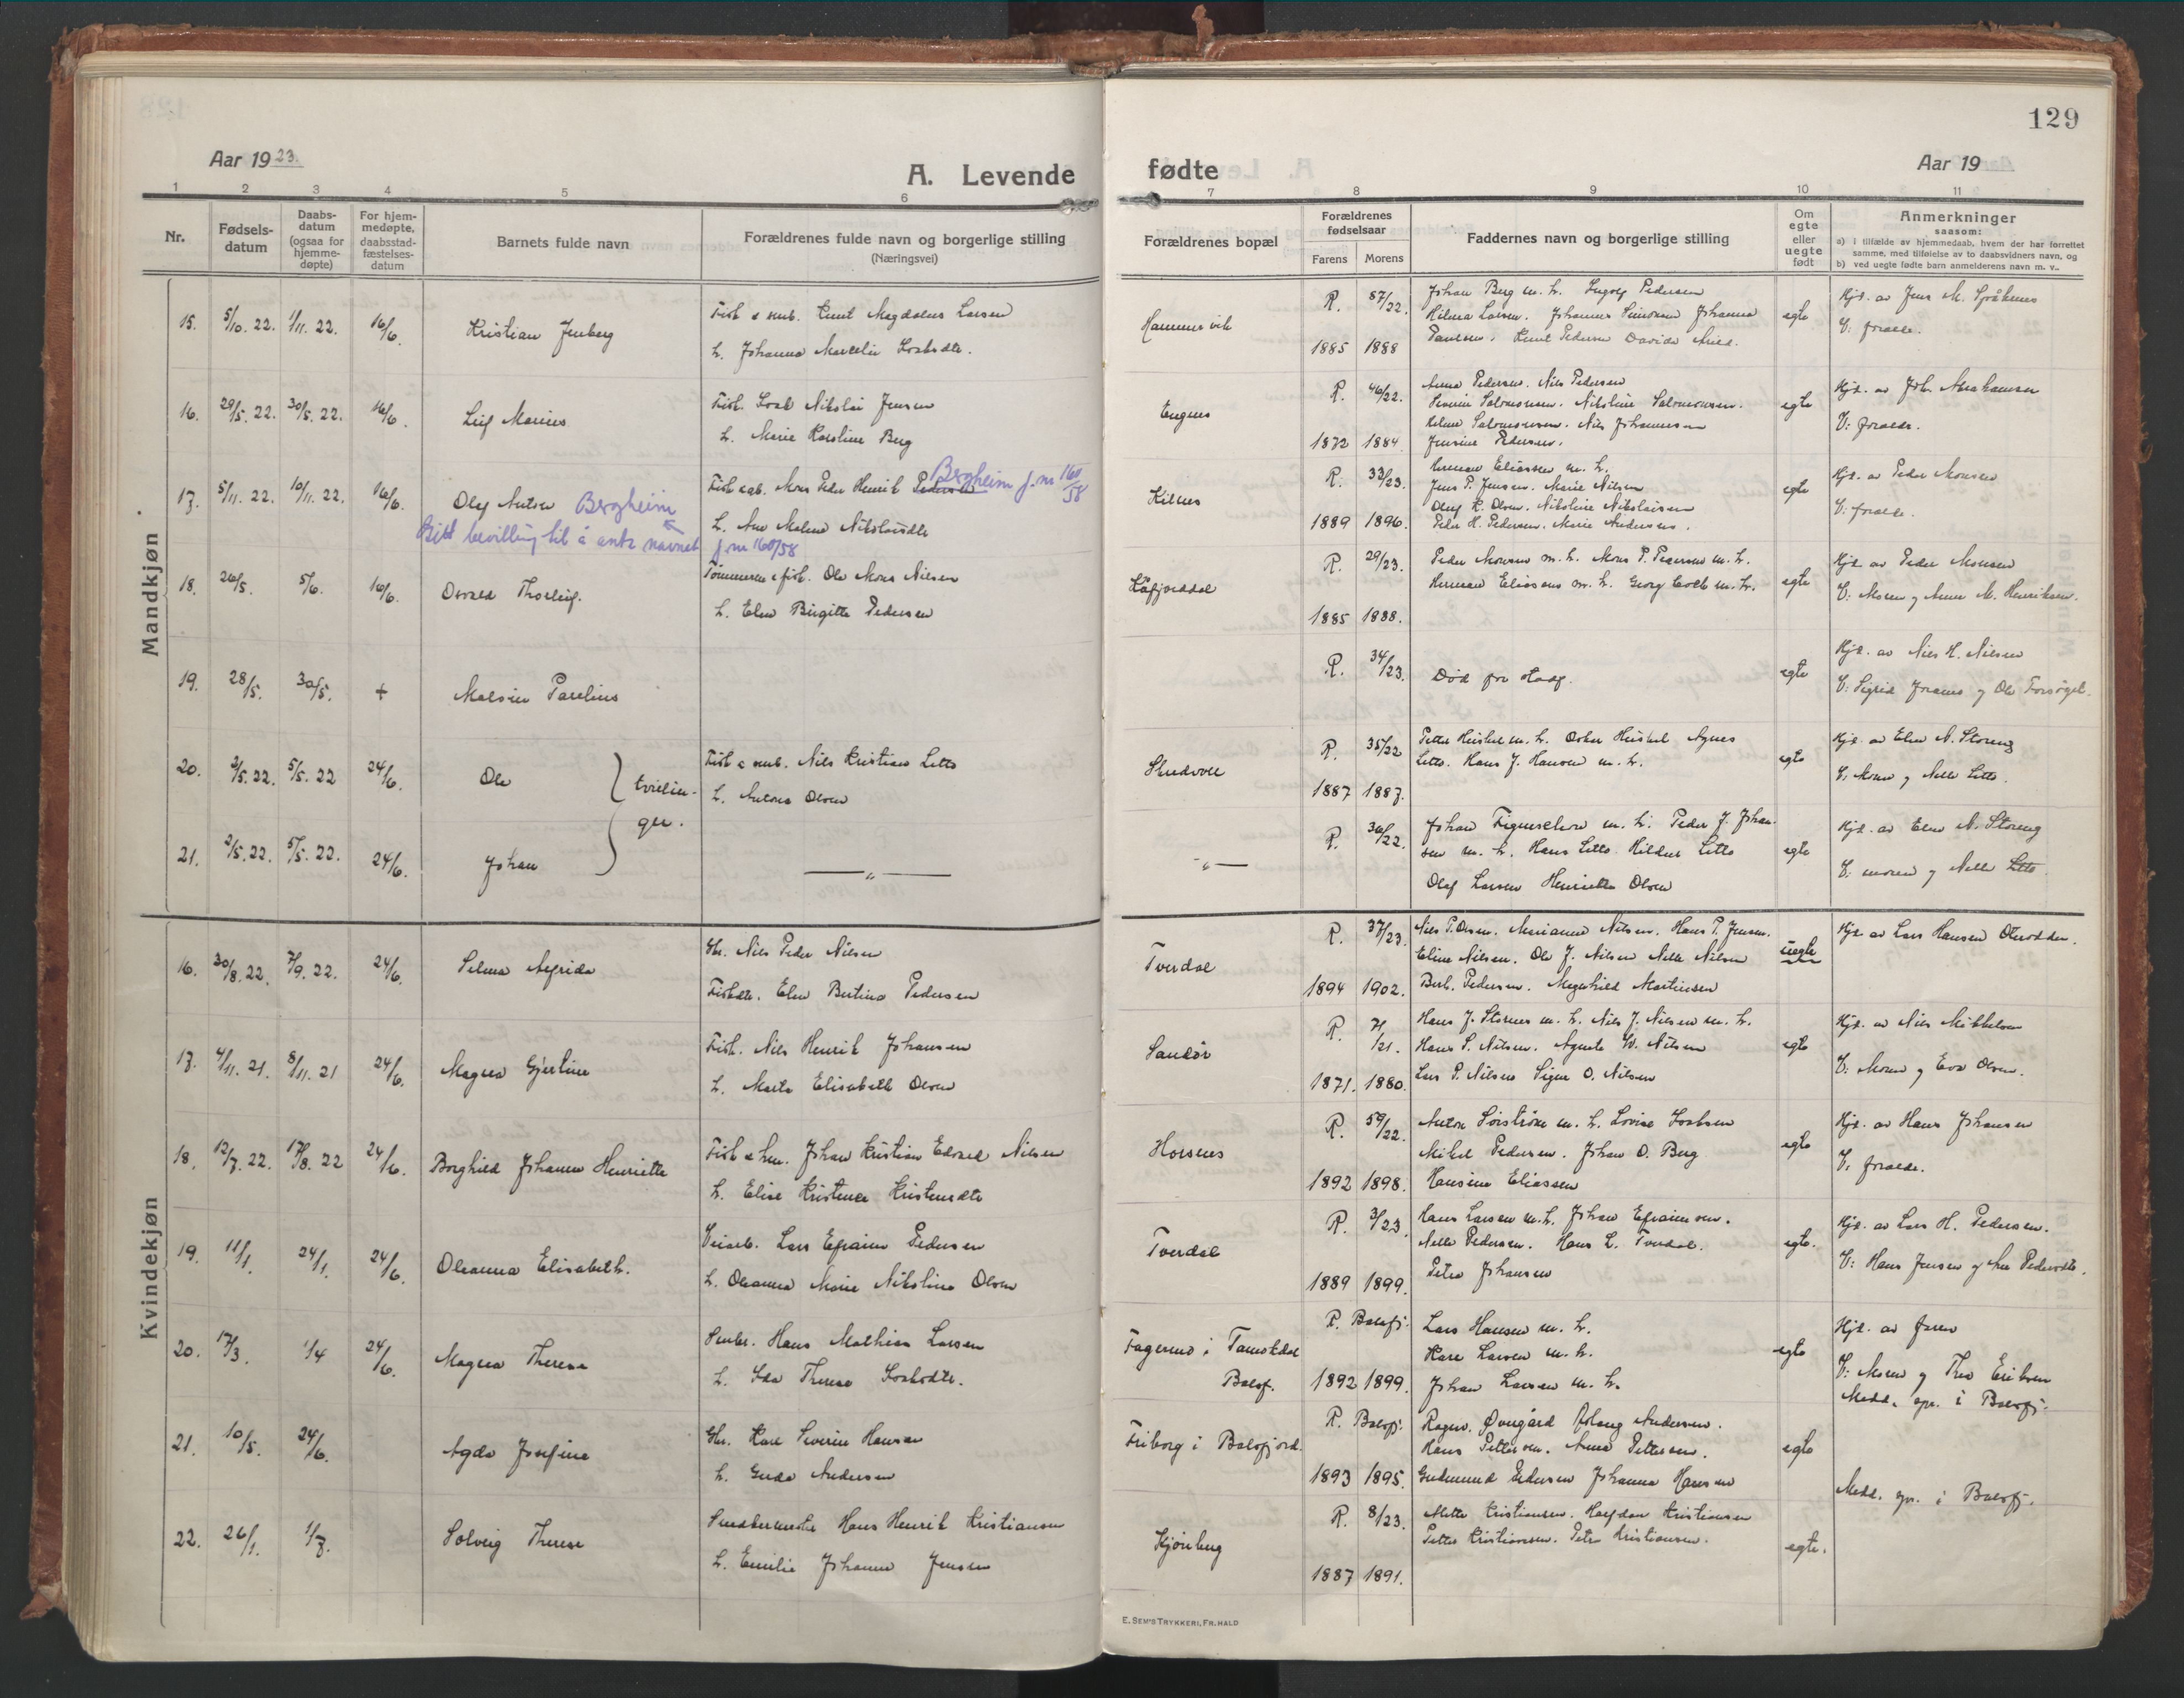 129
Aar 1923.
A. Levende
fødte
Aar 19
1 2 3 4 5 6 7 8 9 10 11
Nr.
Fødsels-
datum
Daabs-
datum
(ogsaa for
hjemme-
døpte)
For hjem-
medøpte,
daabsstad-
fæstelses-
datum
Barnets fulde navn
Forældrenes fulde navn og borgerlige stilling
(Næringsvei)
Forældrenes bopæl
Forældrenes
fødselsaar
Farens Morens
Faddernes navn og borgerlige stilling
Om
egte
eller
uegte
født
Anmerkninger
saasom:
a) i tilfælde av hjemmedaab, hvem der har forrettet
samme, med tilføielse av to daabsvidners navn, og
b) ved uegte fødte barn anmelderens navn m. v..
Mandkjøn
15. 5/10. 22. 1/11. 22. 16/6. Kristian Jenberg
Fisk. & smb. Knut Magdalus Larsen
h. Johanna Marcelie
R. 87/22.
1885 1888
Johan Berg m. h. Ingolf Pedersen
Hilma Larsen. Johannes Simonsen Johanna
Paulsen. Knut Pedersen Davida
egte
Hjd. av Jens M.
V: forældr.
16. 29/5. 22. 30/5. 22. 16/6. Leif Marius
Fisk. Nikolai Jensen
h. Marie Karoline Berg
R. 46/22.
1872 1884.
Anna Pedersen. Nils Pedersen
Severin Salomonsen. Nikoline Salomonsen.
Salomonsen. Nils Johannesen
Jensine Pedersen.
egte
Hjd. av Joh. Abrahamsen
V: forældr.
17. 5/11. 22. 10/11. 22. 16/6. Olaf Anton Bergheim
bevilling til å navnet j. nr 160/58
Mons Peder Henrik Pedersen Bergheim j. nr 160/58
h. Ane Malene
Kilnes
R. 33/23.
1889 1896.
Herman Eliassen m. h.
Jens P. Jensen. Marie Nilsen
Oluf K. Olsen. Nikoline Nikolaisen
Peder H. Pedersen. Marie Andersen.
egte
Hjd. av Peder Monsen
V: forældr.
18. 26/5. 5/6. 16/6. Osvald Thorleif.
Tømmerm. & fisk. Ole Mons Nilsen
h. Elen Birgitte Pedersen
Kåfjorddal
R. 29/23.
1885 1888.
Peder Monsen m. h. Mons P. Pedersen m. h.
Herman Eliassens m. h. Georg m. h.
egte
Hjd. av Peder Monsen
V: Moren og Anna M. Henriksen.
19. 28/5. 30/5. + Parelius
R. 34/23.
Død før stadf.
egte
Hjd. av Nils H. Nilsen
V: Sigrid og Ole
20. 2/5. 22. 5/5. 22 24/6. Ole } tvillin-
Fisk & smb. Nils Kristian Letto
h. Antona Olsen
R. 35/22
1887 1887.
Petter Heiskel m. h. Oskar Heiskel Agnes
Letto. Hans J. Hansen m. h.
egte
Hjd. av Elen N. Storeng
V: Moren og Nelle Letto.
21. 2/5. 22. 5/5. 22. 24/6. Johan } ger.
— „ —
- „ —
R. 36/22.
Johan m. h. Peder J. Johan-
sen m. h. Hans Letto. Hildur Letto
Olaf Larsen Henriette Olsen
egte
Hjd. av Elen N. Storeng
V: moren og Nelle Letto.
Kvindekjøn
16. 30/8. 22. 7/9. 22. 24/6. Selma Alfrida
Gbr. Nils Peder Nilsen
Fiskdtr. Elen Bertine Pedersen
Tverdal
R. 37/23.
1894 1902.
Nils P. Olsen. Marianne Nilsen. Hans P. Jensen.
Eline Nilsen. Ole J. Nilsen Nelle Nilsen
Berh. Pedersen. Magnhild Martinsen
uegte
Hjd. av Lars Hansen
17. 4/11. 21. 8/11. 21 24/6. Magna Gjertine
Fisk. Nils Henrik Johansen
h. Marta Elisabeth Olsen
Sandør
R. 71/21.
1871. 1880.
Hans J. Stornes m. h. Nils J. Nilsen m. h.
Hans S. Nilsen. Agnete W. Nilsen
Lars P. Nilsen Signe O. Nilsen
egte
Hjd. av Nils Mikkelsen
V: Moren og Eva Olsen.
18. 12/7. 22. 17/8. 22 24/6. Borghild Johanne Henriette
Johan Kristian Edvard Nilsen
h. Elise Kristence Kristensdtr
Horsnes
R. 59/22.
1892 1898.
Anton Sørstrøm m. h. Lovise
Mikal Pedersen. Johan O. Berg
Hansine Eliassen
egte
Hjd. av Hans Johansen
V: forældr.
19. 11/1. 24/1. 24/6. Oleanna Elisabeth.
Veiarb. Lars Efraim Pedersen
h. Oleanna Marie Nikoline Olsen
Tverdal
R. 3/23.
1889 1899.
Hans Larsen m. h. Johan Efraimsen.
Nelle Pedersen. Hans L. Tverdal.
Petra Johansen
egte.
Hjd. av Lars H. Pedersen.
V: Hans Jensen og Ane Pedersdtr.
20. 17/3. 1/4 24/6. Magna Therese
Smbr. Hans Mathias Larsen
h. Ida Therese
Fagernes i Tamokdal
Balsf.
R. Balsfj.
1892 1899.
Lars Hansen m. h.
Kare Larsen m. h.
Johan Larsen m. h.
egte
Hjd. av faren
V: Moren og Thea Eriksen
Medd. spr. i Balsfj.
21. 10/5. 24/6. Agda Josefine
Gbr. Kare Severin Hansen
h. Gerda Andersen
Friborg i Balsfjord.
R. Balsfj.
1893 1895.
Ragnv. Øvergård Aslaug Andersen.
Hans Pettersen. Anna Pettersen.
Gudmund Pedersen Johanna Hansen
egte
Medd. spr. i Balsfj.
22. 26/1. 1/7. Solveig Therese
Hans Henrik Kristiansen
h. Emilie Johanne Jensen
R. 8/23.
1887 1891.
Mette Kristiansen. Halfdan Kristiansen
Petter Kristiansen. Petra Kristiansen.
egte.
E. SEM'S TRYKKERI, FR. HALD